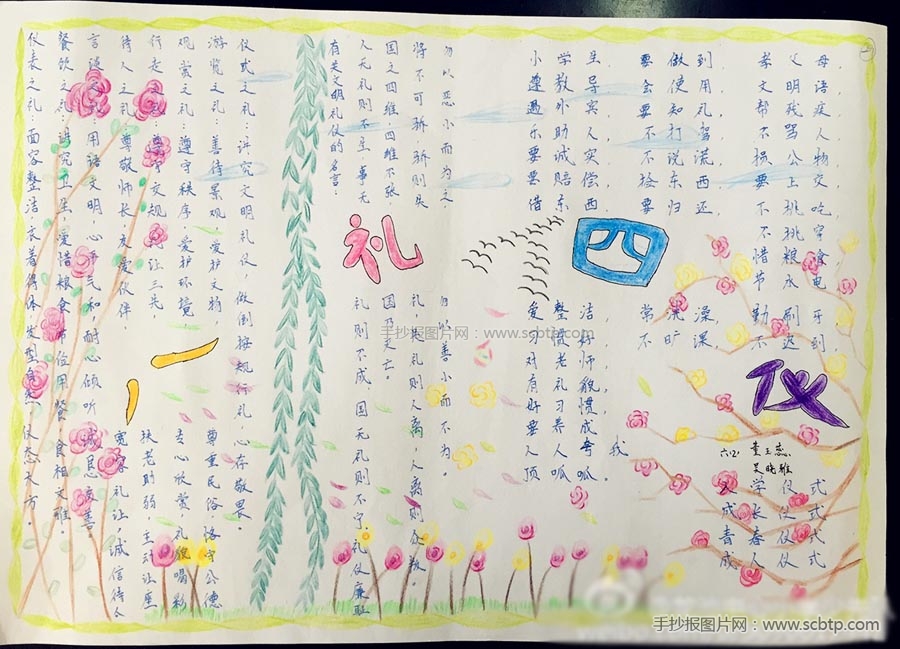 小学生，要做到，孝父母，
遵教导，会使用，文明语，
遇外宾，要知礼，
乐助人，不打骂，
要诚实，不说谎，不损公物
要赔偿，捡东西，要上
借东西，要归还，不挑吃，
不挑穿，惜粮食，节水电，
爱整洁，常洗澡，勤刷牙
不旷课，不迟到
对老师，有礼貌，
好习惯，要养成，
人人夸，顶呱呱。
我
八礼四仪
六（2）
入学仪式
成长仪式
青春仪式
成人仪式
有关文明礼仪的名言：
勿以恶小而为之，勿以善小而不为。
将不可骄，骄则失礼，失礼则人离，人离则众叛。
国之四维，四维不张，国乃灭亡。礼仪廉耻
人无礼则不生，事无礼则不成，国无礼则不宁
仪式之礼：讲究文明礼仪，做到按规行礼，心存敬畏。
游览之礼：善待景观，爱护文物，尊重民俗，恪守公德
观赏之礼：遵守秩序，爱护环境，专心欣赏，礼貌喝彩
行走之礼：遵守交规，让三先，扶老助弱，主动让座
待人之礼：尊敬师长，友爱伙伴，宽容礼让，诚信待人
言谈之礼：用语文明，心平气和，耐心倾听，诚恳友善，
餐饮之礼：讲究卫生，爱惜粮食，席位用餐，食相文雅
仪表之礼：面容整洁，衣着得体，发型自然，仪态大方
手抄报图片网：www.scbtp.com
手抄报图片网：www.scbtp.com